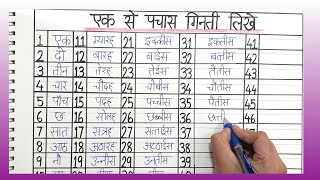 एक से पचास गिनती लिखे
1 एक 11 ग्यारह 21 इक्कीस 31 इकतीस 41
2 दो 12 बारह 22 बाईस 32 बत्तीस 42
3 तीन 13 तेरह 23 तेईस 33 तैंतीस 43
4 चार 14 चौदह 24 चौबीस 34 चौंतीस 44
5 पाँच 15 पंद्रह 25 पच्चीस 35 पैंतीस 45
6 छः 16 सोलह 26 छब्बीस 36 छत्ती 46
7 सात 17 सत्रह 27 सत्ताईस 37
8 आठ 18 अठारह 28 अठाईस 38
9 नौ 19 उन्नीस 29 उनतीस 39